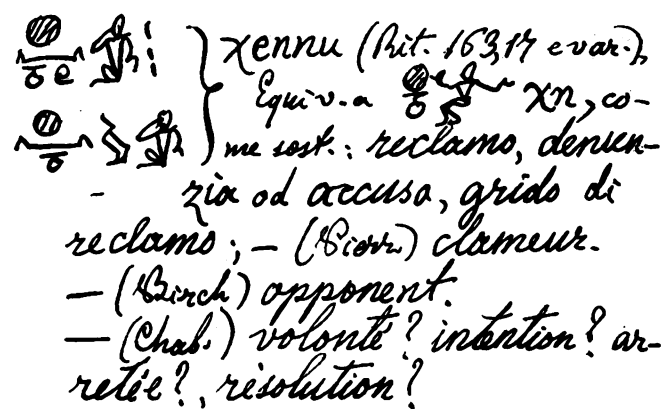 χennu (Rit. 163,17 e var.),
Equiv. a χn, co-
me sost.: reclamo, denun-
zia od accusa, grido di
reclamo; — (Pierr.) clameur.
— (Birch) opponent.
— (Chab.) volonté? intention? ar-
retée?, résolution?